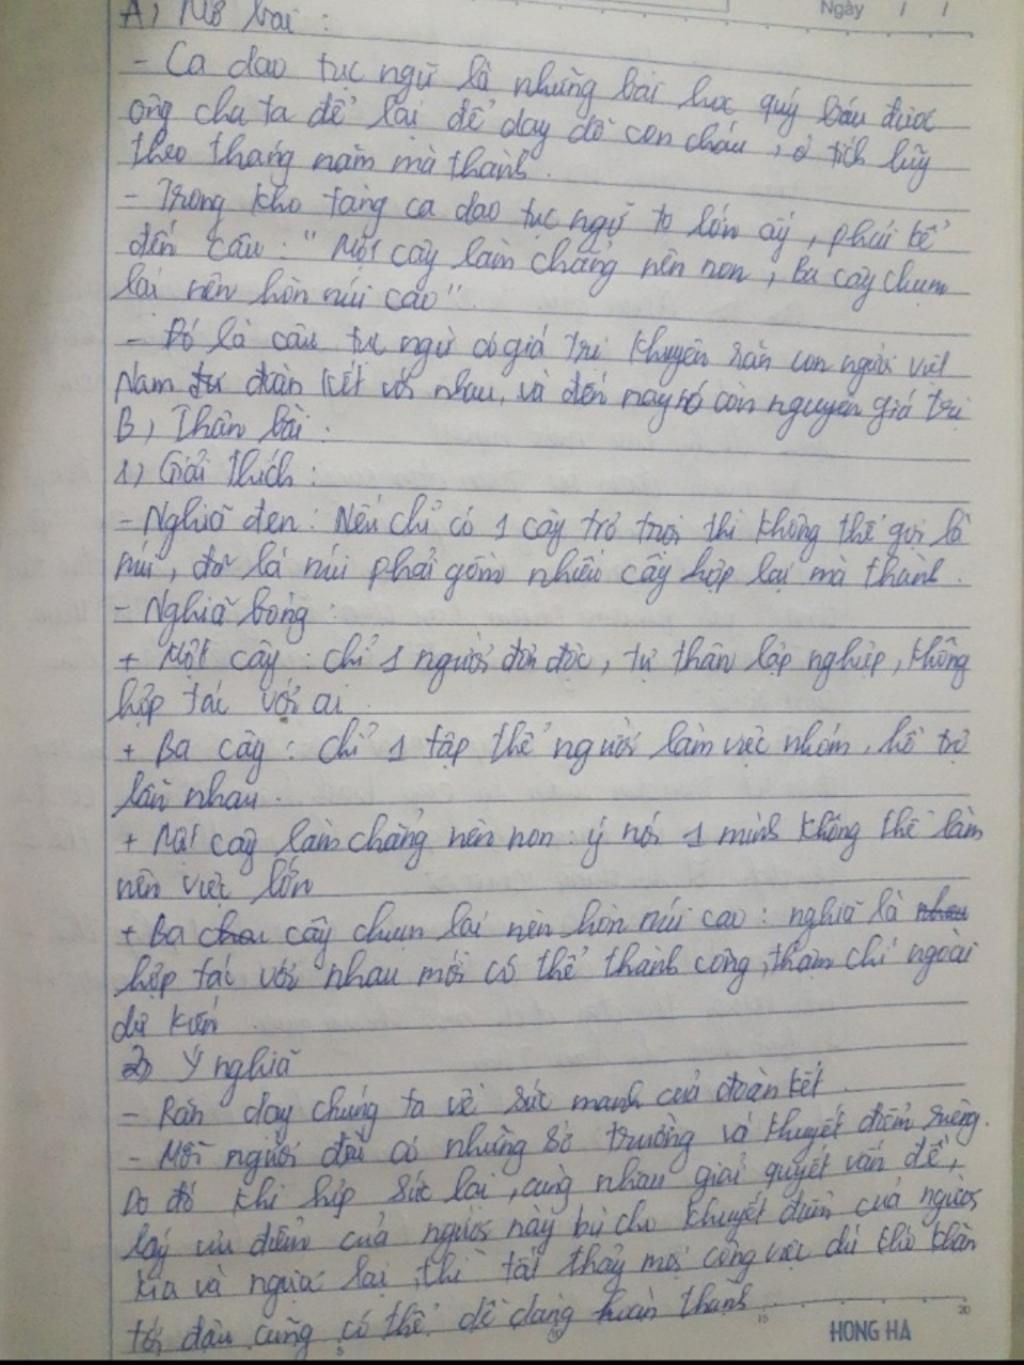 Ngày / /
A) Mở bài :
- Ca dao tục ngữ là những bài học quý báu được
ông cha ta để lại để dạy dỗ con cháu, tích lũy
theo tháng năm mà thành.
- Trong kho tàng ca dao tục ngữ to lớn ấy, phải kể
đến câu: "Một cây làm chẳng nên non, Ba cây chụm
lại nên hòn núi cao".
- Đó là câu tục ngữ có giá trị khuyên răn con người việt
Nam đoàn kết với nhau, và đến nay nó còn nguyên giá trị
B) Thân bài :
1) Giải thích :
- Nghĩa đen : Nếu chỉ có 1 cây trơ trọi thì không thể gọi là
núi, đã là núi phải gồm nhiều cây hợp lại mà thành.
- Nghĩa bóng :
+ Một cây : chỉ 1 người đơn độc, tự thân lập nghiệp, không
hợp tác với ai
+ Ba cây : chỉ 1 tập thể người làm việc nhóm, hỗ trợ
lẫn nhau.
+ Một cây làm chẳng nên non : ý nói 1 mình không thể làm
nên việc lớn
+ Ba cây chụm lại nên hòn núi cao : nghĩa là
hợp tác với nhau mới có thể thành công, thậm chí ngoài
dự kiến.
2) Ý nghĩa
- Răn dạy chúng ta về sức mạnh của đoàn kết.
- Mỗi người đều có những sở trường và khuyết điểm riêng.
Do đó khi hợp sức lại, cùng nhau giải quyết vấn đề,
lấy ưu điểm của người này bù cho khuyết điểm của người
kia và ngược lại, thì tất thảy mọi công việc dù khó khăn
tới đâu cũng có thể dễ dàng hoàn thành.
5 10 15 20
HONG HA